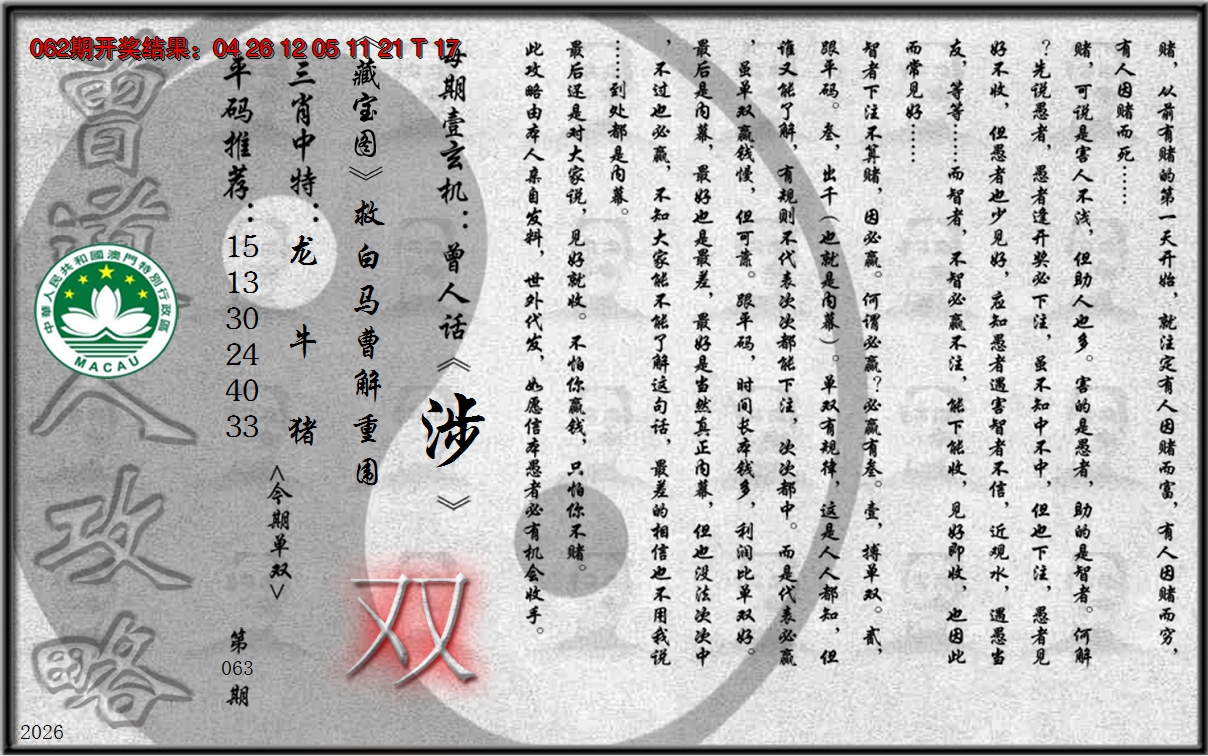 062期开奖结果：04 26 12 05 11 21 T 17
赌，从前有赌的第一天开始，就注定有人因赌而富，有人因赌而穷，
有人因赌而死……
赌，可说是害人不浅，但助人也多。害的是愚者，助的是智者。何解
？先说愚者，愚者逢开奖必下注，虽不知中不中，但也下注，愚者见
好不收，但愚者也少见好，应知愚者遇害智者不信，近观水，遇愚当
友，等等……而智者，不智必赢不注，能下能收，见好即收，也因此
而常见好……
智者下注不算赌，因必赢。何谓必赢？必赢有叁。壹，搏单双。贰，
跟平码。叁，出千（也就是内幕）。单双有规律，这是人人都知，但
谁又能了解，有规则不代表次次都能下注，次次都中。而是代表必赢
，虽单双赢钱慢，但可靠。跟平码，时间长本钱多，利润比单双好。
最后是内幕，最好也是最差，最好是当然真正内幕，但也没法次次中
，不过也必赢，不知大家能不能了解这句话，最差的相信也不用我说
……到处都是内幕。
最后还是对大家说，见好就收。不怕你赢钱，只怕你不赌。
此攻略由本人亲自发料，世外代发，如愿信本愚者必有机会收手。
每期壹玄机：曾人话《涉》
《藏宝图》救白马曹解重围
双
三肖中特：龙 牛 猪
<今期单双>
平码推荐：15 13 30 24 40 33
第063期
曾道人攻略
中華人民共和國澳門特別行政區
MACAU
2026